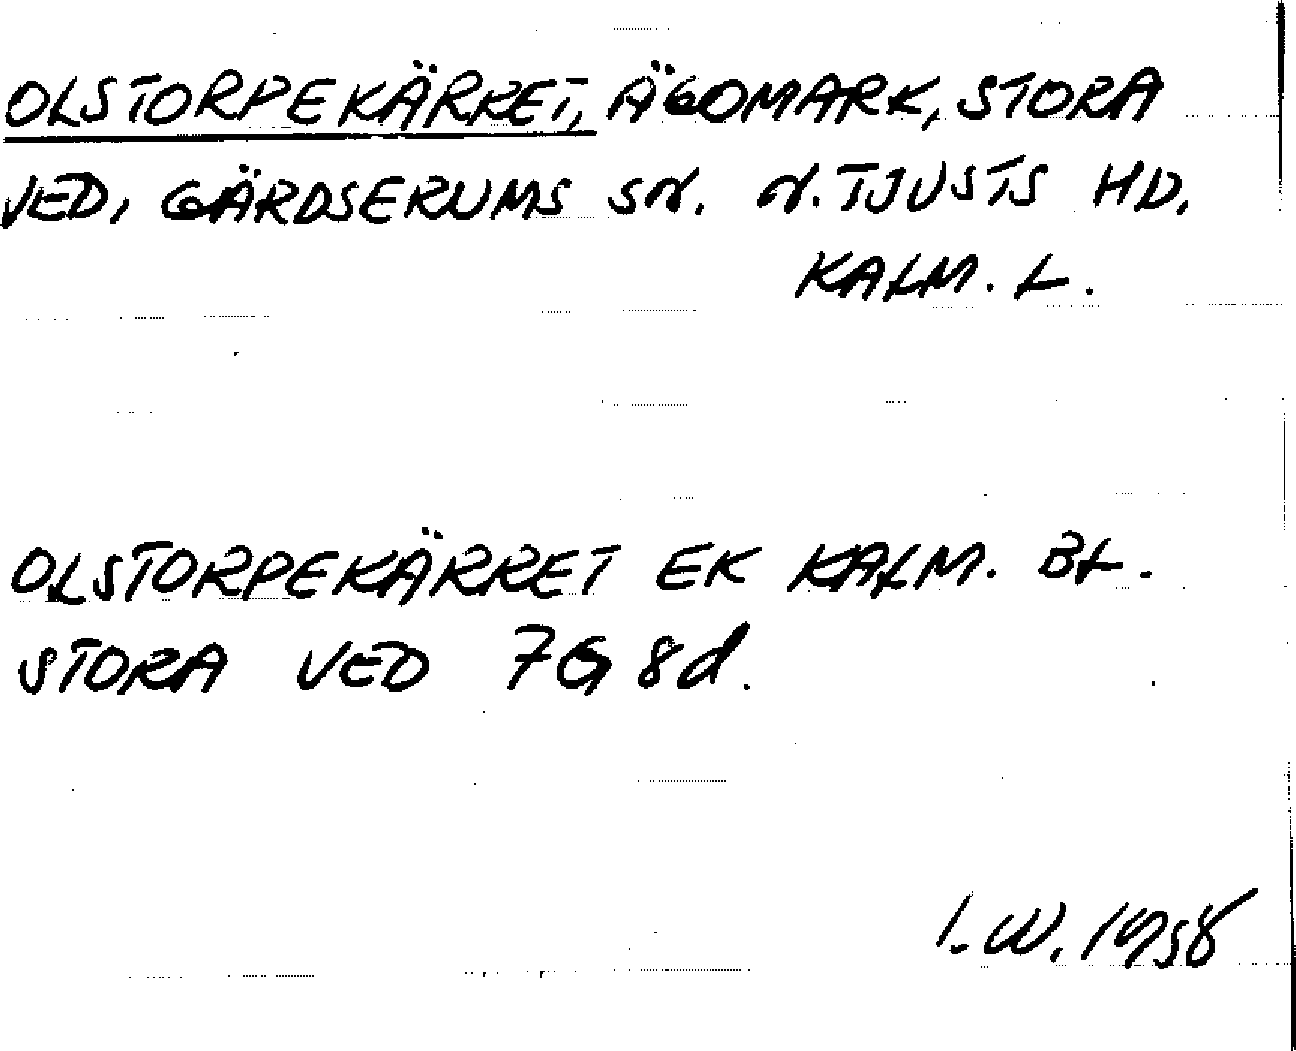 OLSTORPEKÄRRET, ÄGOMARK, STORA
VED, GÄRDSERUMS SN. N. TJUSTS HD.
KALM. L.
OLSTORPEKÄRRET EK KALM. BL.
STORA VED 7G 8d.
I. W. 1958